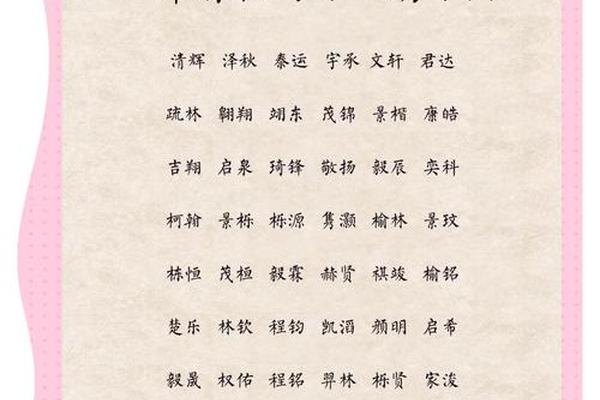 清辉 泽秋 泰运 宇承 文轩 君达
疏林 翱翔 翊东 茂锦 景楷 康皓
吉翔 启泉 琦锋 敬扬 毅辰 奕科
柯翰 景栎 栎源 隽灏 榆林 景玟
栋恒 茂桓 毅霖 赫贤 祺竣 榆铭
楚乐 林钦 程钧 凯滔 颜明 启希
毅晟 权佑 程铭 羿林 栎贤 家浚